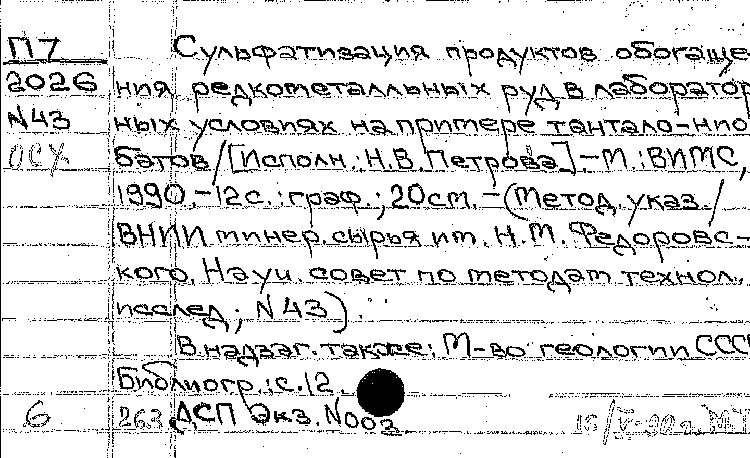 П7 Сульфатизация продуктов обогаще
2026 ния редкометалльных руд в лаборатор
N43 ных условиях на примере тантало-нио
батов/[Исполн.: Н.В.Петрова].-М.:ВИМС,
1990.-12с.:граф.; 20см.-(Метод.указ./
ВНИИ минер.сырья им. Н.М. Федоровс-
кого. Науч. совет по методам технол.
исслед; N43).
В надзаг. также: М-во геологии СССР
Библиогр.:с.12.
6 263 ДСП Экз. N003